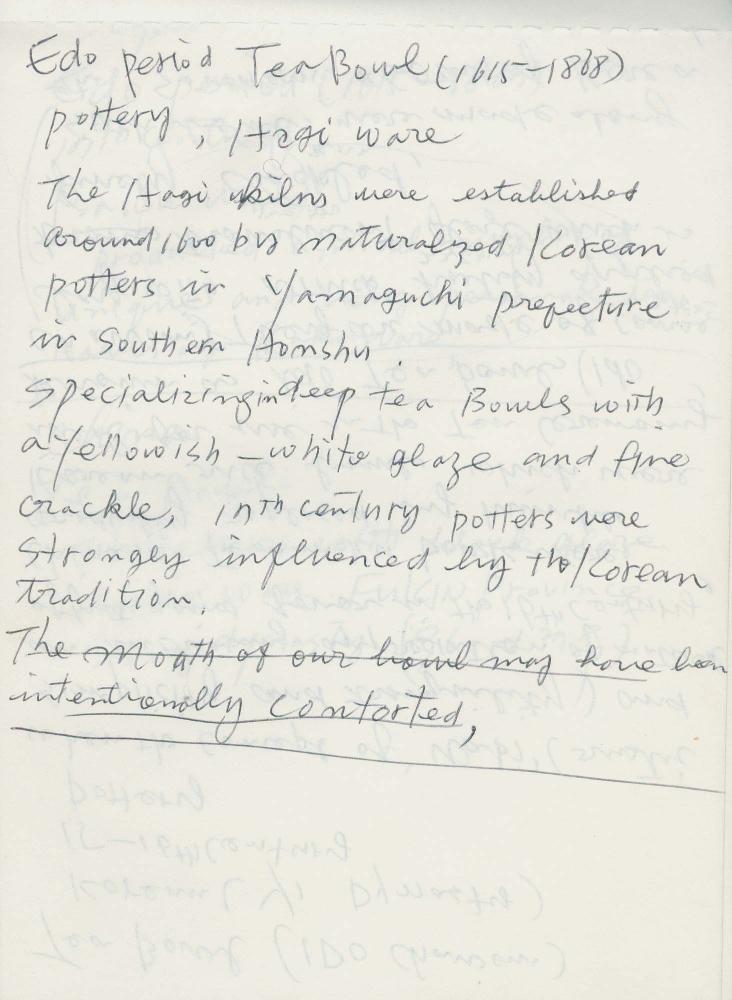 Edo period Tea Bowl (1615-1868)
pottery, Hagi ware
The Hagi kilns were established
around 1600 by naturalized Korean
potters in Yamaguchi prefecture
in Southern Honshu.
Specializing in deep tea Bowls with
a yellowish-white glaze and fine
crackle, 17th century potters were
strongly influenced by the Korean
tradition.
The mouth of our bowl may have been
intentionally contorted,